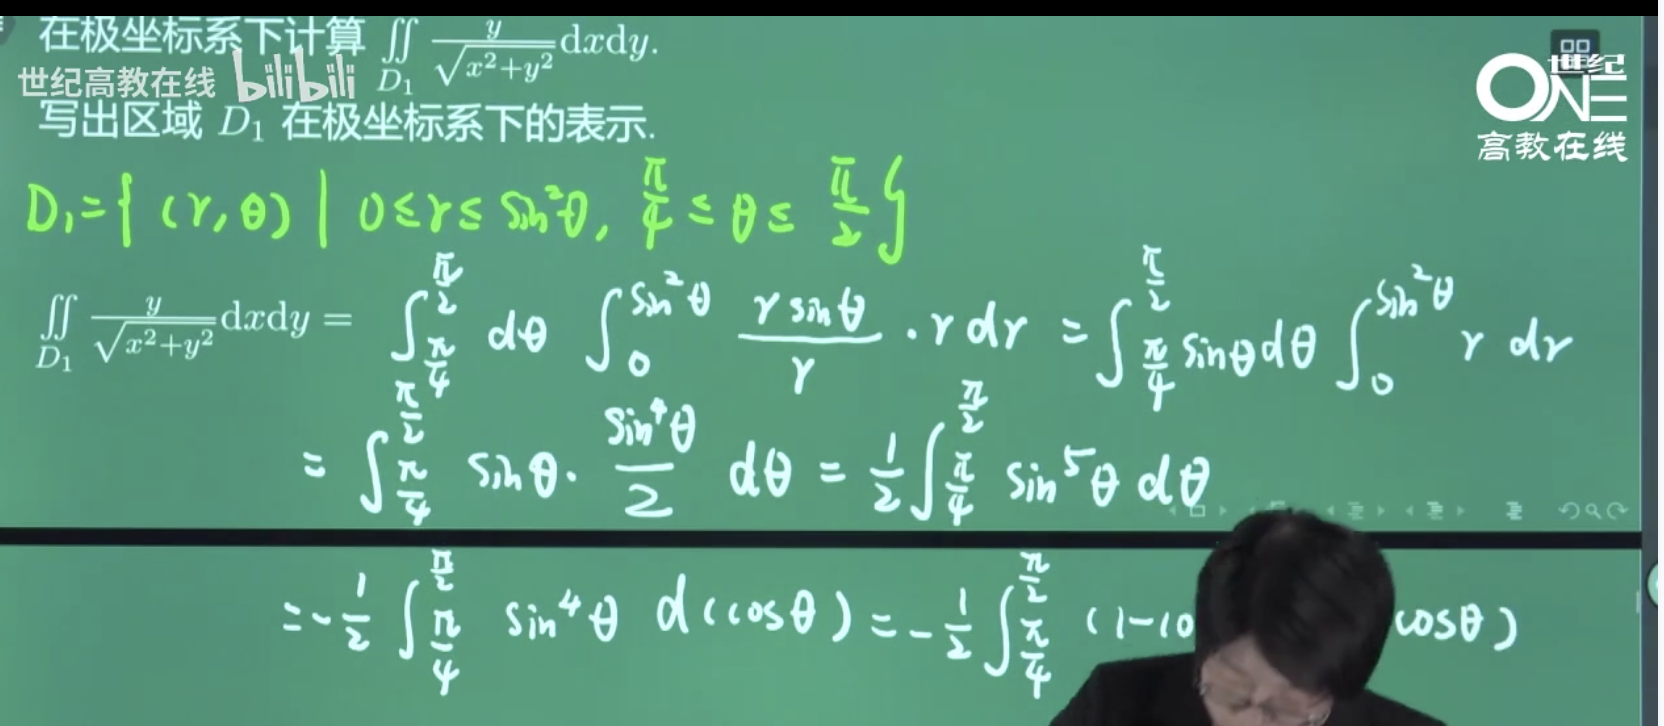 在极坐标系下计算 ∬_{D₁} y/√(x²+y²) dxdy.
世纪高教在线 bilibili
世纪
ONE
高教在线
写出区域 D₁ 在极坐标系下的表示.
D₁={ (r,θ) | 0≤r≤ sin²θ, π/4 ≤ θ ≤ π/2 }
∬_{D₁} y/√(x²+y²) dxdy = ∫_{π/4}^{π/2} dθ ∫_0^{sin²θ} (r sinθ)/r · r dr = ∫_{π/4}^{π/2} sinθ dθ ∫_0^{sin²θ} r dr
= ∫_{π/4}^{π/2} sinθ · (sin⁴θ)/2 dθ = 1/2 ∫_{π/4}^{π/2} sin⁵θ dθ
= -1/2 ∫_{π/4}^{π/2} sin⁴θ d(cosθ) = -1/2 ∫_{π/4}^{π/2} (1-co cosθ)